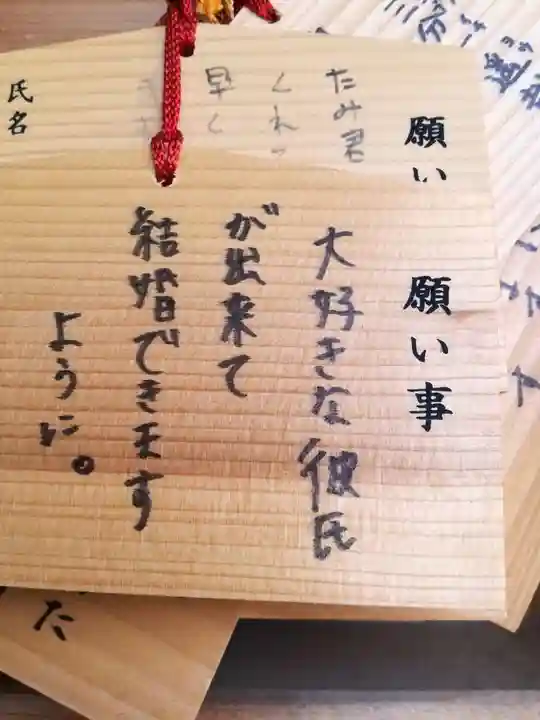 願い事
大好きな彼氏
が出来て
結婚できます
ように。
願い
たみ君
くれ
早く
氏名
た